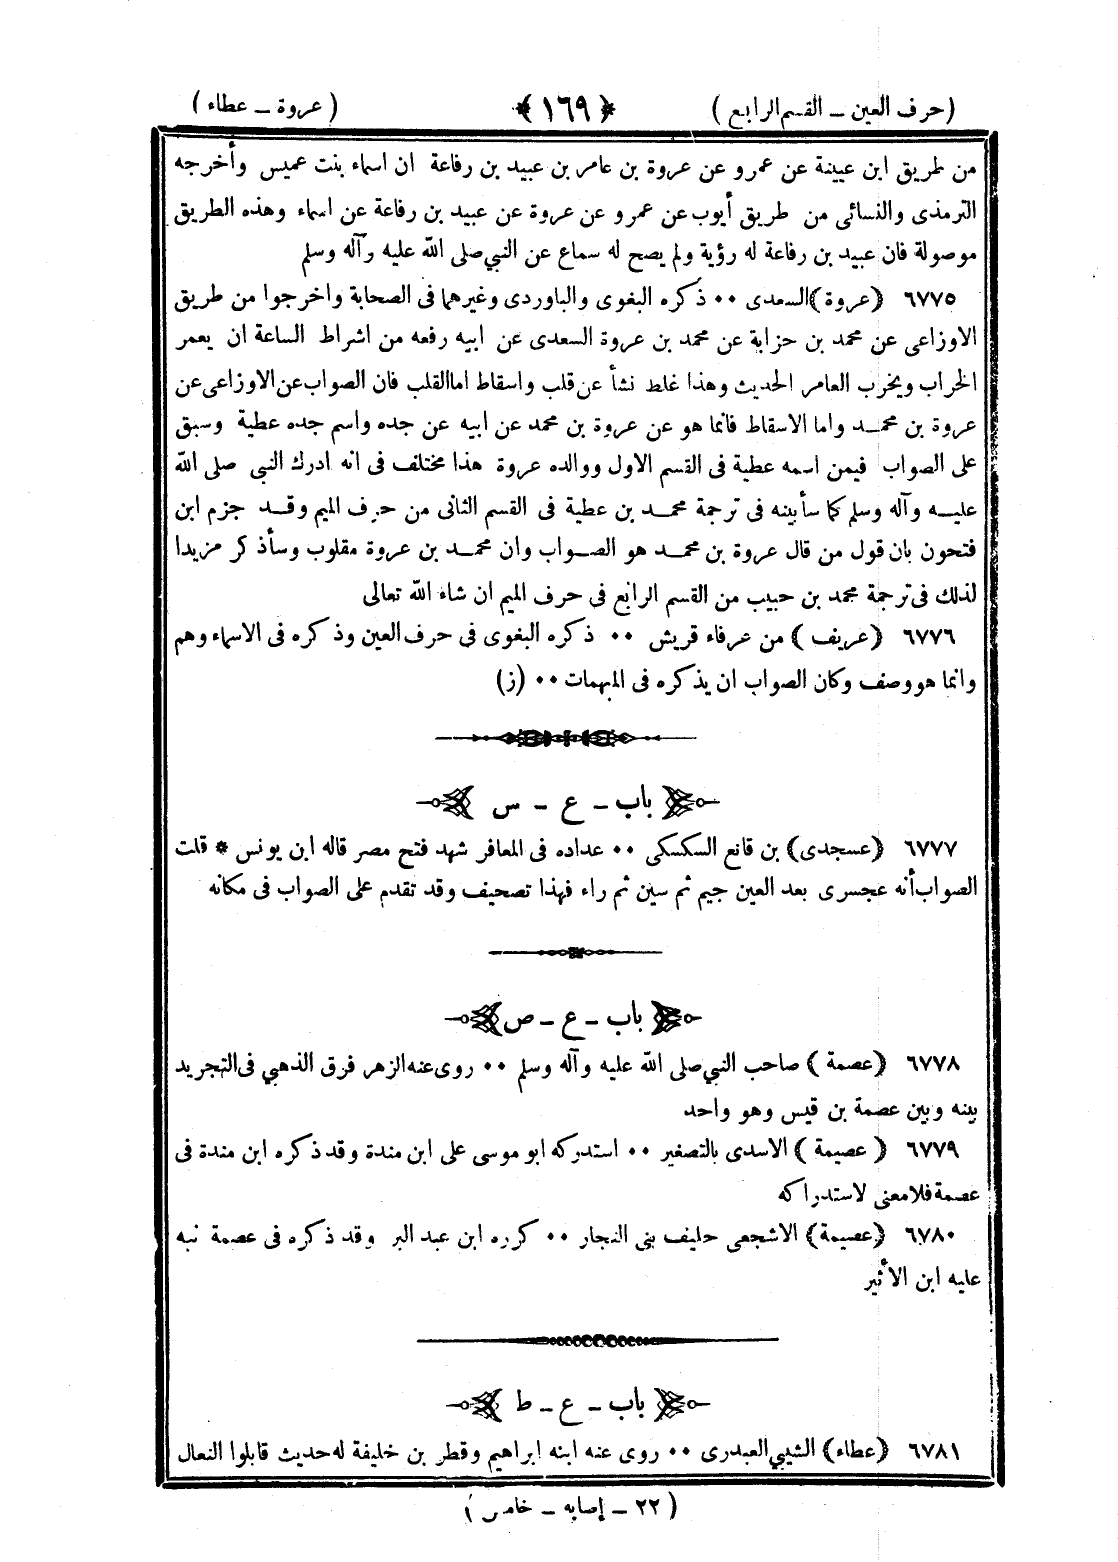 ( حرف العين ــ القسم الرابع ) ﴿ ١٦٩ ﴾ ( عروة ــ عطاء )
من طريق ابن عيينة عن عمرو عن عروة بن عامر بن عبيد بن رفاعة ان اسماء بنت عميس وأخرجه
الترمذى والنسائى من طريق أيوب عن عمرو عن عروة عن عبيد بن رفاعة عن اسماء وهذه الطريق
موصولة فان عبيد بن رفاعة له رؤية ولم يصح له سماع عن النبي صلى الله عليه وآله وسلم
٦٧٧٥ ( عروة ) السعدى ٠٠ ذكره البغوى والباوردى وغيرهما فى الصحابة واخرجوا من طريق
الاوزاعى عن محمد بن حزابة عن محمد بن عروة السعدى عن ابيه رفعه من اشراط الساعة ان يعمر
الخراب ويخرب العامر الحديث وهذا غلط نشأ عن قلب واسقاط اما القلب فان الصواب عن الاوزاعى عن
عروة بن محمـد واما الاسقاط فانما هو عن عروة بن محمد عن ابيه عن جده واسم جده عطية وسبق
على الصواب فيمن اسمه عطية فى القسم الاول ووالده عروة هذا مختلف فى انه ادرك النبي صلى الله
عليـه وآله وسلم كما سأبينه فى ترجمة محمـد بن عطية فى القسم الثانى من حرف الميم وقـد جزم ابن
فتحون بان قول من قال عروة بن محمـد هو الصـواب وان محمـد بن عروة مقلوب وسأذكر مزيدا
لذلك فى ترجمة محمد بن حبيب من القسم الرابع فى حرف الميم ان شاء الله تعالى
٦٧٧٦ ( عريف ) من عرفاء قريش ٠٠ ذكره البغوى فى حرف العين وذكره فى الاسماء وهم
وانما هو وصف وكان الصواب ان يذكره فى المبهمات ٠٠ (ز)
باب ــ ع ــ س
٦٧٧٧ ( عسجدى ) بن قانع السكسكى ٠٠ عداده فى المعافر شهد فتح مصر قاله ابن يونس * قلت
الصواب أنه عجسرى بعد العين جيم ثم سين ثم راء فهذا تصحيف وقد تقدم على الصواب فى مكانه
باب ــ ع ــ ص
٦٧٧٨ ( عصمة ) صاحب النبي صلى الله عليه وآله وسلم ٠٠ روى عنه الزهر فرق الذهبي فى التجريد
بينه وبين عصمة بن قيس وهو واحد
٦٧٧٩ ( عصيمة ) الاسدى بالتصغير ٠٠ استدركه ابو موسى على ابن مندة وقد ذكره ابن مندة فى
عصمة فلا معنى لاستدراكه
٦٧٨٠ ( عصيمة ) الاشجعى حليف بنى النجار ٠٠ كرره ابن عبد البر وقد ذكره فى عصمة نبه
عليه ابن الأثير
باب ــ ع ــ ط
٦٧٨١ ( عطاء ) الشيبي العبدرى ٠٠ روى عنه ابنه ابراهيم وقطر بن خليفة له حديث قابلوا النعال
( ٢٢ ــ إصابه ــ خامس )